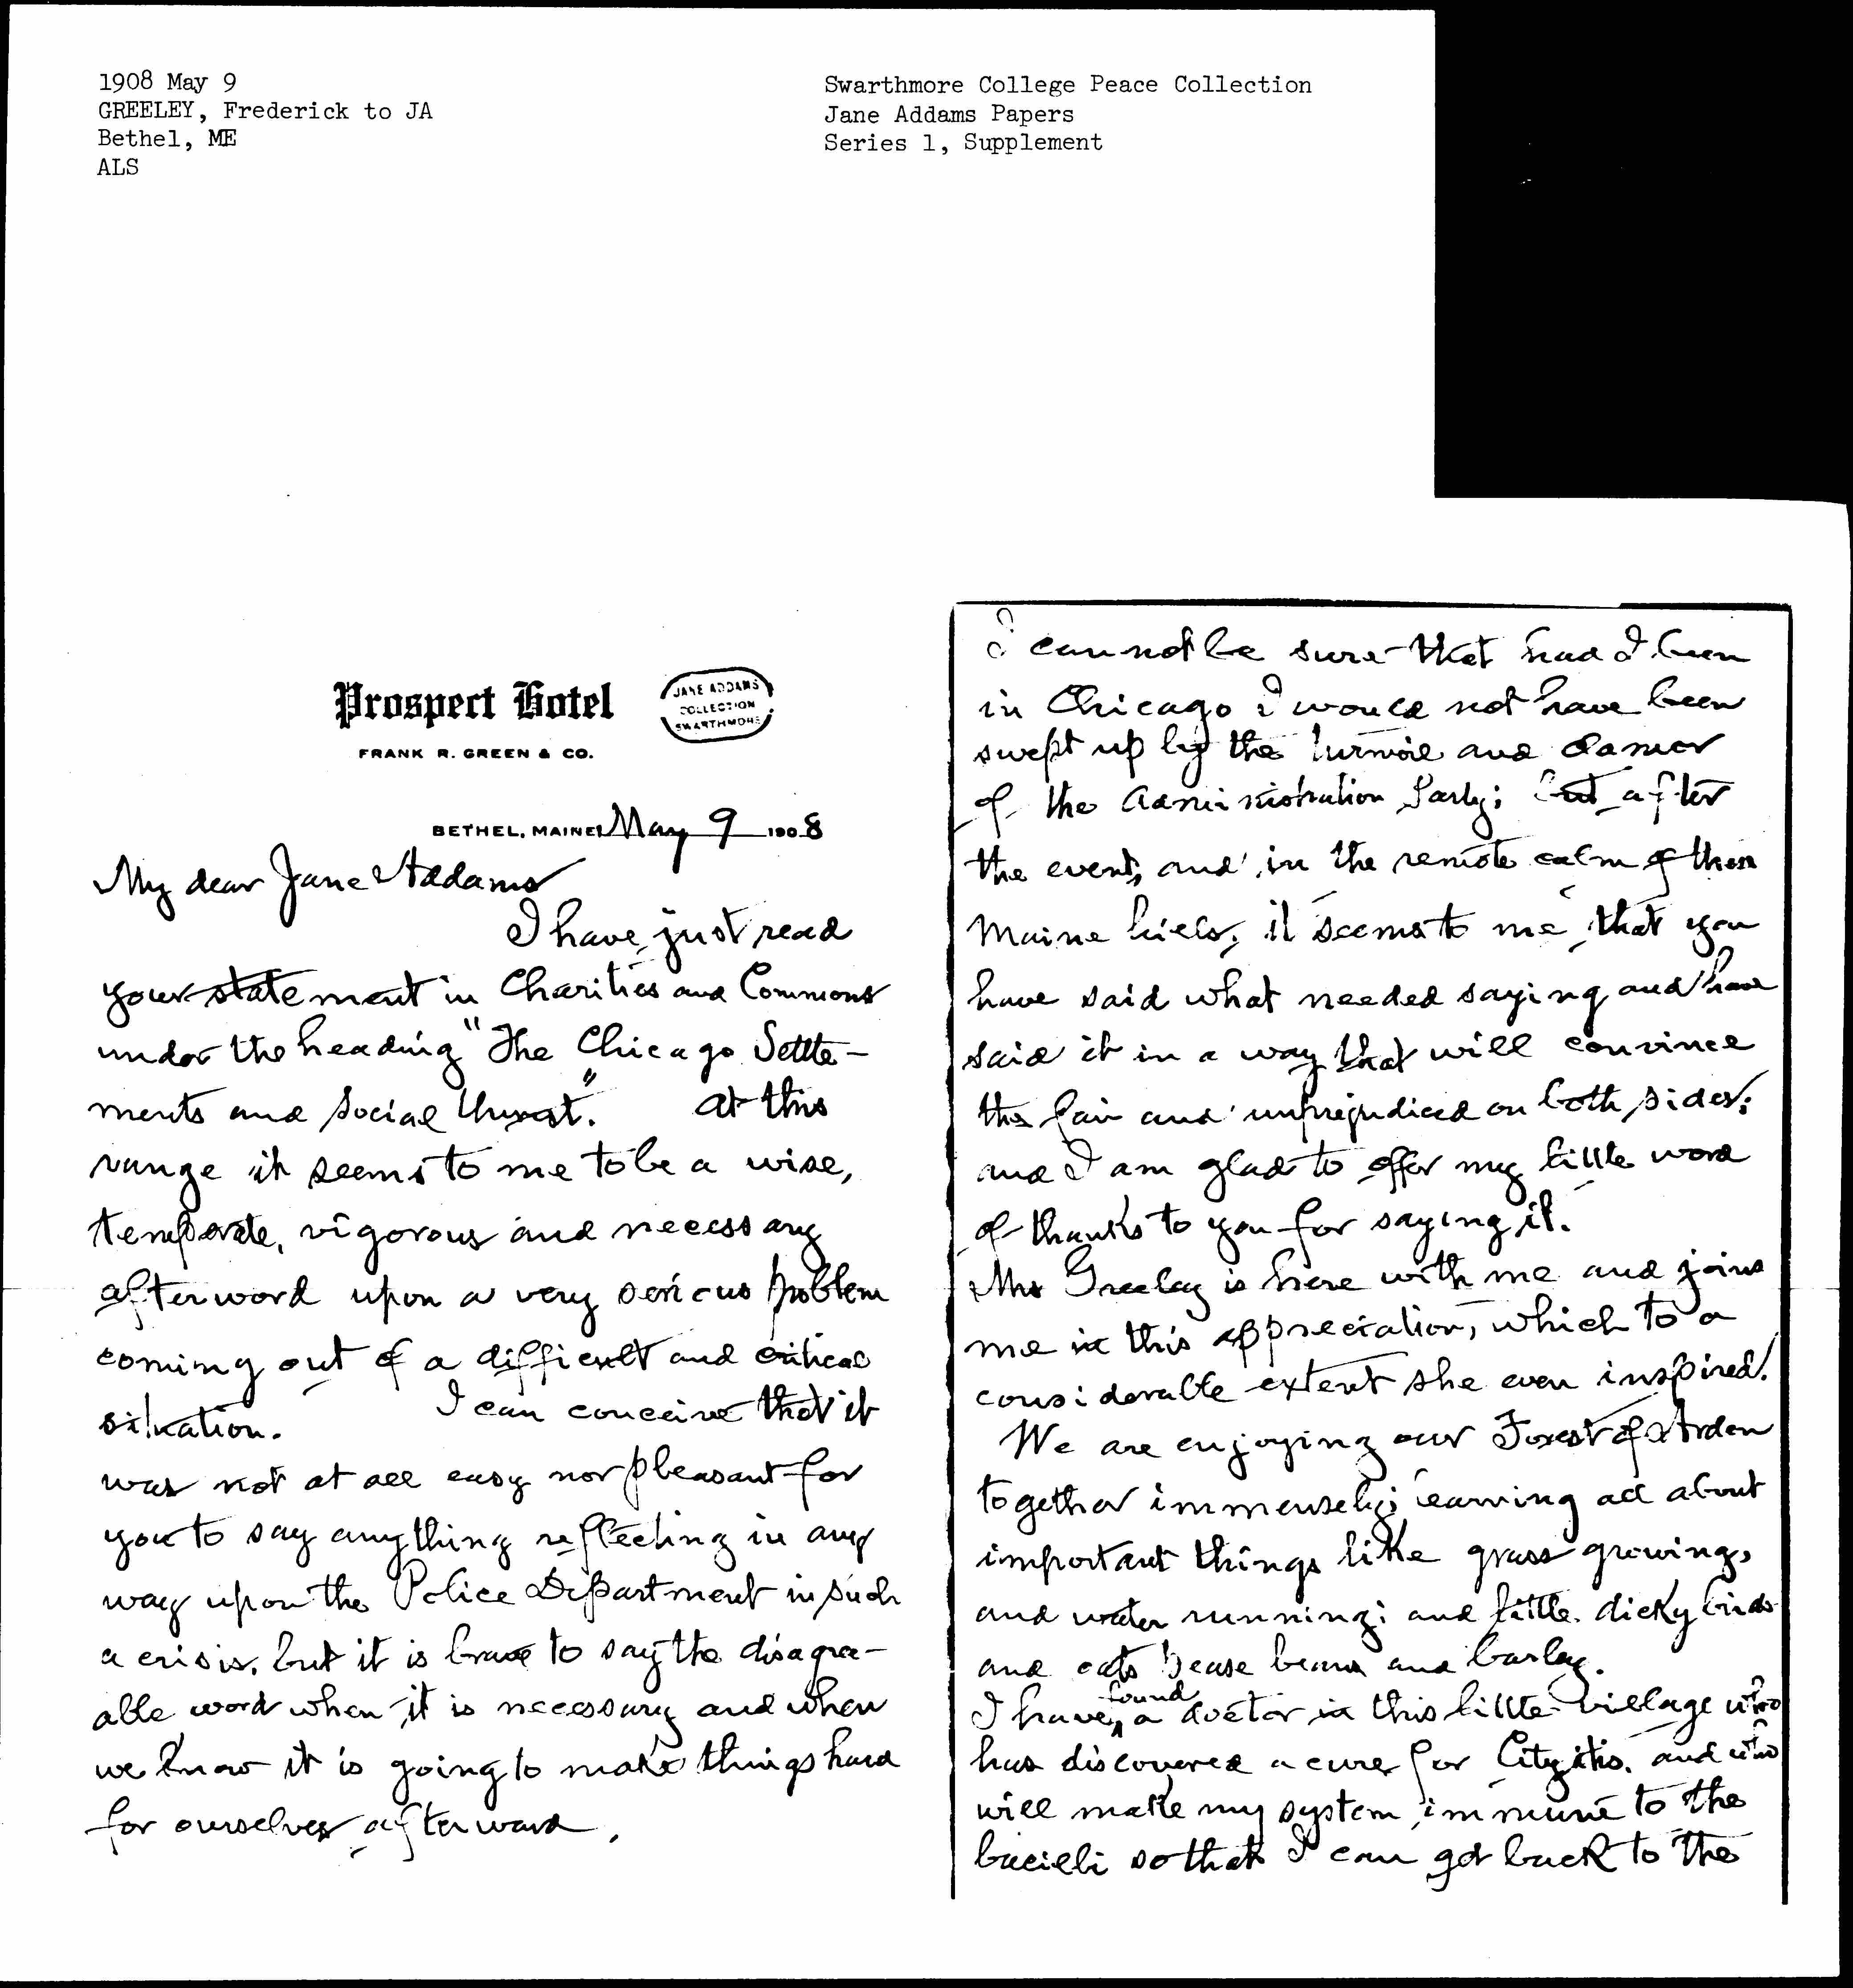 1908 May 9
GREELEY, Frederick to JA
Bethel, ME
ALS
Swarthmore College Peace Collection
Jane Addams Papers
Series 1, Supplement
Prospect Hotel
FRANK R. GREEN & CO.
JANE ADDAMS
COLLECTION
SWARTHMORE
BETHEL, MAINE, May 9 1908
My dear Jane Addams
I have just read
your statement in Charities and Commons
under the heading "The Chicago Settle-
ments and Social Unrest." At this
range it seems to me to be a wise,
temperate, vigorous and necessary
afterword upon a very serious problem
coming out of a difficult and critical
situation. I can conceive that it
was not at all easy nor pleasant for
you to say anything reflecting in any
way upon the Police Department in such
a crisis, but it is brave to say the disagree-
able word when it is necessary and when
we know it is going to make things hard
for ourselves afterward.
I can not be sure that had I been
in Chicago I would not have been
swept up by the turmoil and clamor
of the Administration Party; but after
the event, and in the remote calm of these
Maine hills, it seems to me that you
have said what needed saying and have
said it in a way that will convince
the fair and unprejudiced on both sides;
and I am glad to offer my little word
of thanks to you for saying it.
Mrs Greeley is here with me and joins
me in this appreciation, which to a
considerable extent she even inspired.
We are enjoying our Forest of Arden
together immensely; learning all about
important things like grass growing,
and water running; and little dicky birds
and oats pease beans and barley.
I have found a doctor in this little village who
has discovered a cure for Cityitis. and who
will make my system immune to the
bacilli so that I can get back to the